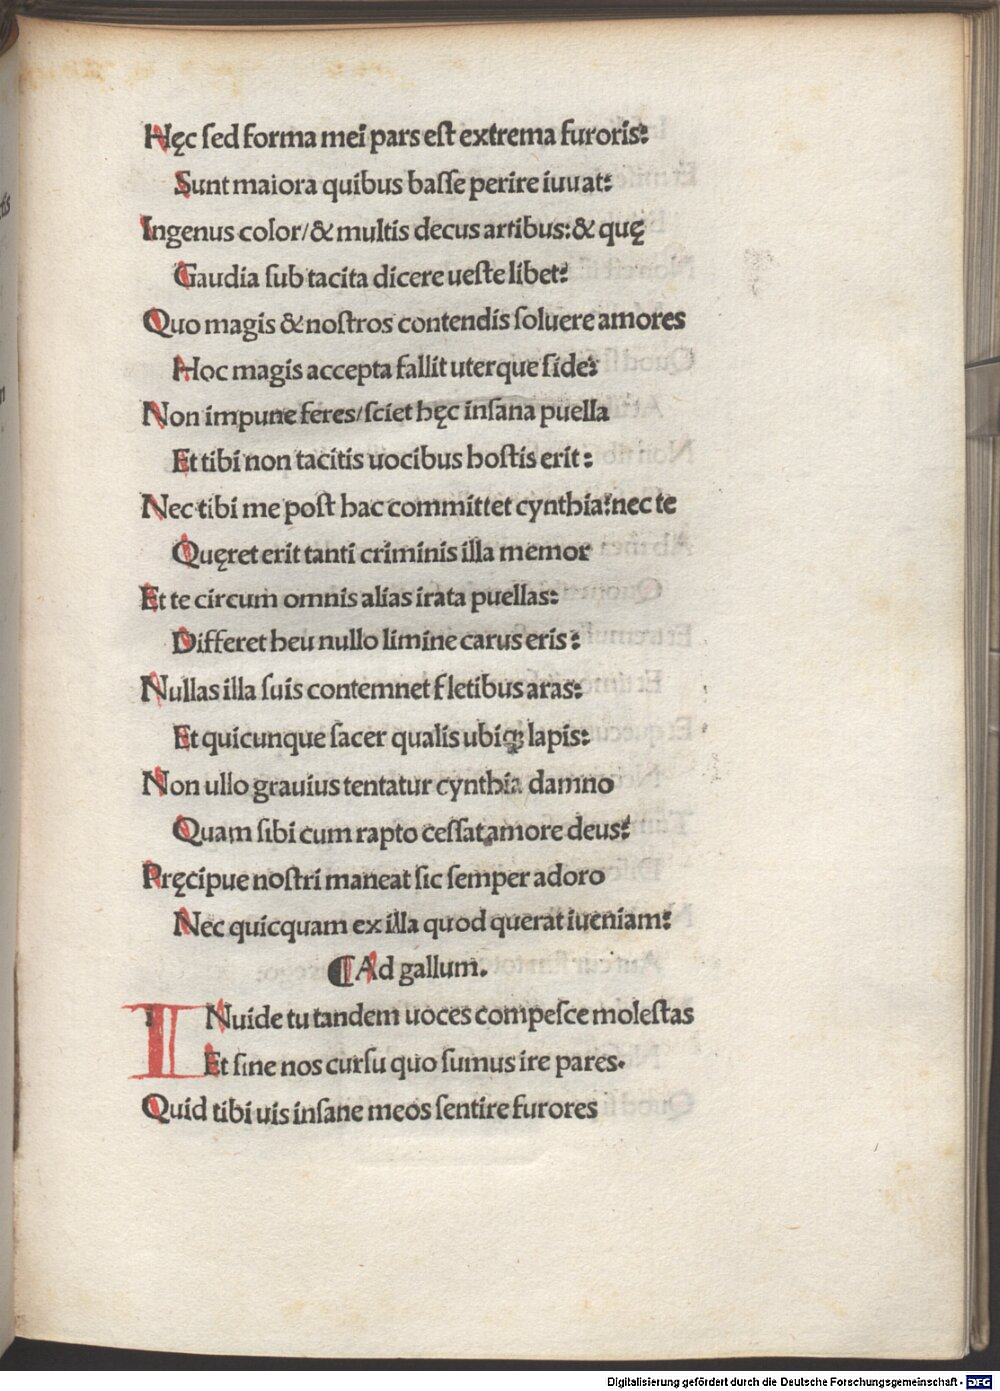 Hęc sed forma mei pars est extrema furoris:
Sunt maiora quibus basse perire iuuat:
Ingenus color/& multis decus artibus:& quę
Gaudia sub tacita dicere ueste libet:
Quo magis & nostros contendis soluere amores
Hoc magis accepta fallit uterque fide:
Non impune feres/sciet hęc insana puella
Et tibi non tacitis uocibus hostis erit:
Nec tibi me post hac committet cynthia:nec te
Quęret erit tanti criminis illa memor
Et te circum omnis alias irata puellas:
Differet heu nullo limine carus eris:
Nullas illa suis contemnet fletibus aras:
Et quicunque sacer qualis ubiq; lapis:
Non ullo grauius tentatur cynthia damno
Quam sibi cum rapto cessat amore deus:
Pręcipue nostri maneat sic semper adoro
Nec quicquam ex illa quod querat iueniam:
¶ Ad gallum.
INuide tu tandem uoces compesce molestas
Et sine nos cursu quo sumus ire pares.
Quid tibi uis insane meos sentire furores
Digitalisierung gefördert durch die Deutsche Forschungsgemeinschaft - DFG